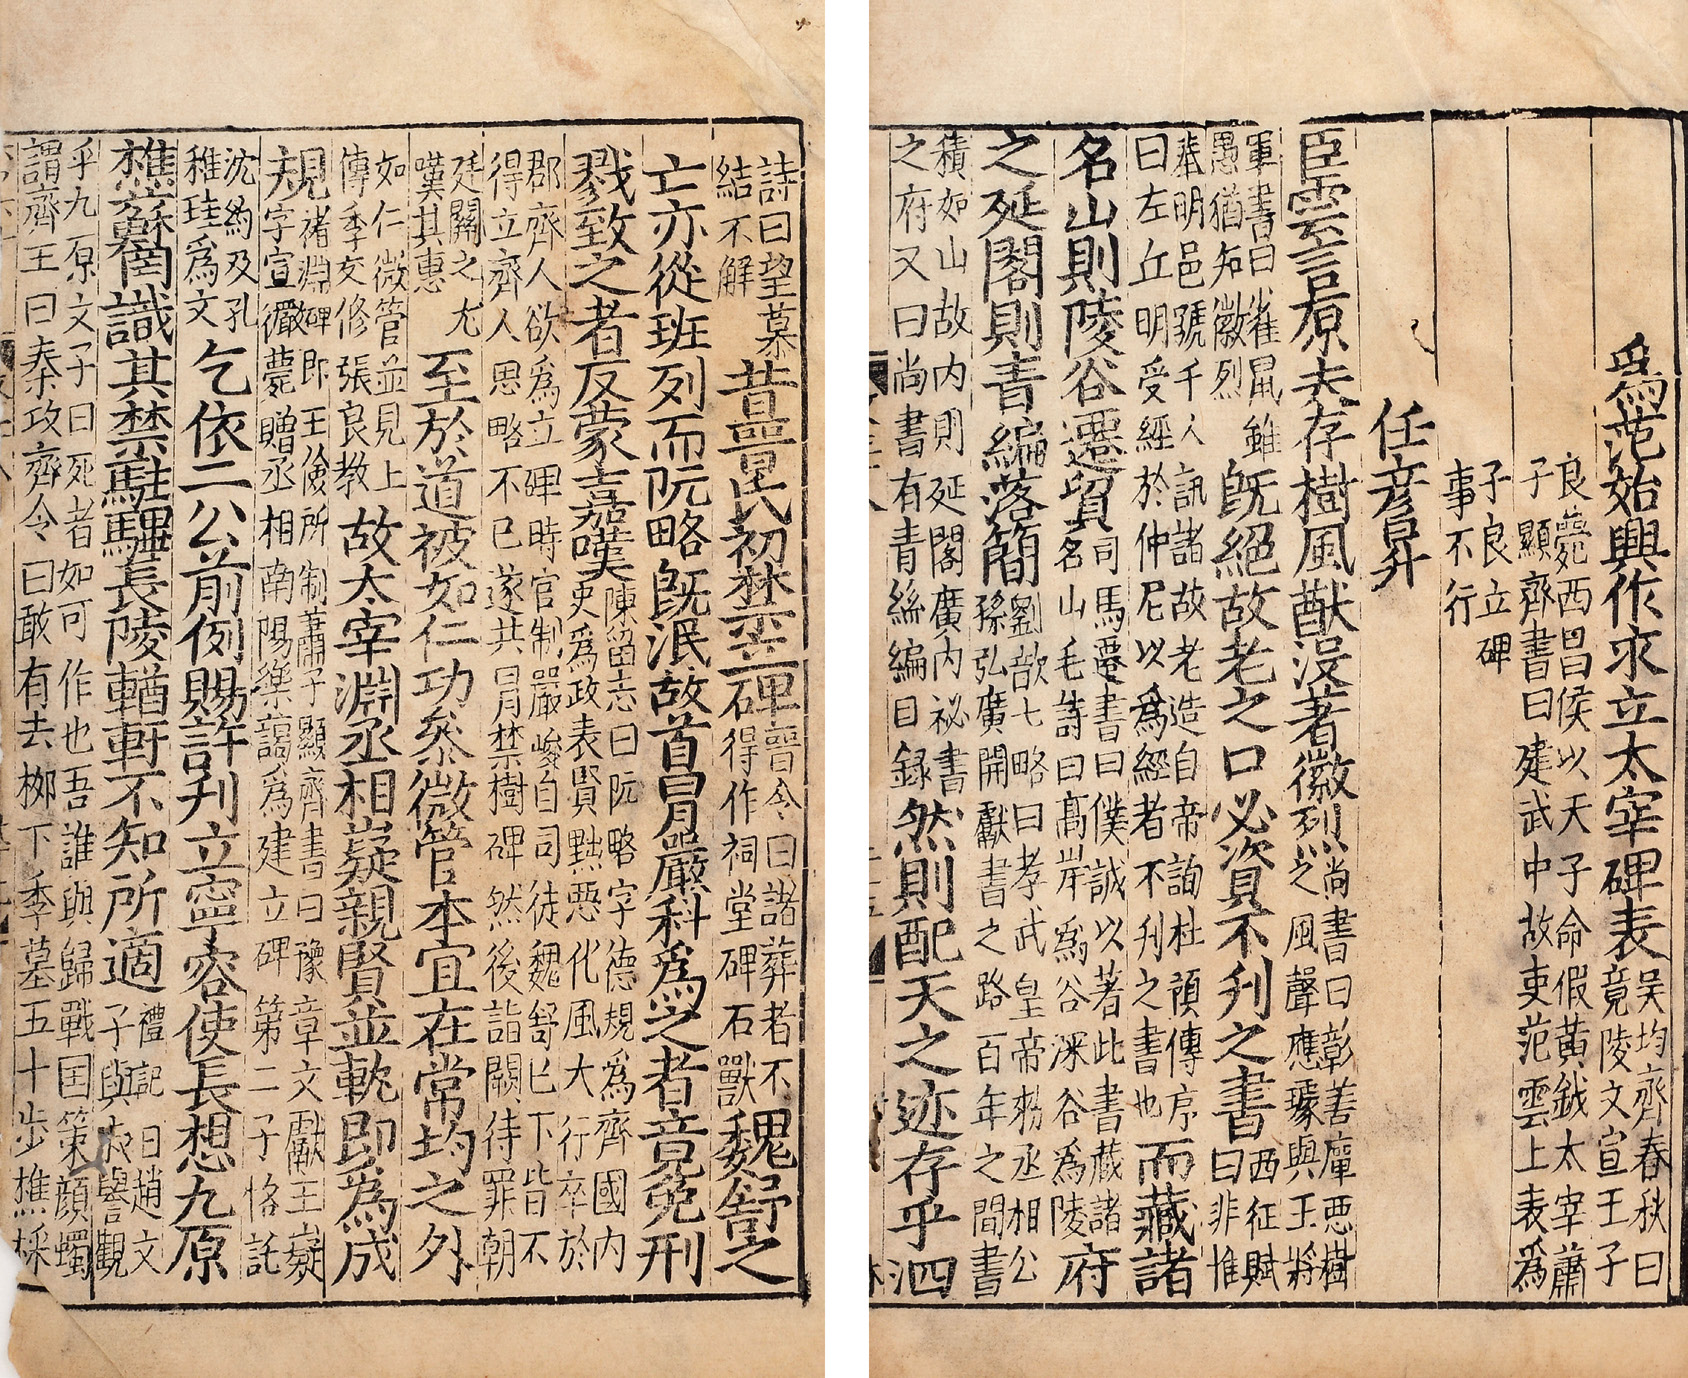 為范始興作求立太宰碑表吳均齊春秋曰竟陵文宣王子
良薨西昌侯以天子命假黃鉞太宰蕭子顯齊書曰建武中故吏范雲上表為
子良立碑事不行
任彥昇
臣雲言原夫存樹風猷没著徽烈尚書曰彰善癉惡樹之風聲應璩與王將
軍書曰雀鼠雖愚猶知徽烈既絕故老之口必資不刋之書西征賦曰非惟
奉明邑號千人訊諸故老造自帝詢杜預傳序曰左丘明受經於仲尼以為經者不刋之書也而藏諸
名山則陵谷遷貿司馬遷書曰僕誠以著此書藏諸名山毛詩曰高岸為谷深谷為陵府
之延閣則青編落簡劉歆七略曰孝武皇帝勑丞相公孫弘廣開獻書之路百年之間書
積如山故内則延閣廣内祕書之府又曰尚書有青絲編目録然則配天之迹存乎泗
詩曰望慕結不解昔晉氏初禁立碑晉令曰諸葬者不得作祠堂碑石獸魏舒之
亡亦從班列而阮略既泯故首冒嚴科為之者竟免刑
戮致之者反蒙嘉嘆陳留志曰阮略字德規為齊國内史為政表賢黜惡化風大行卒於
郡齊人欲為立碑時官制嚴峻自司徒魏舒已下皆不得立齊人思略不已遂共冒禁樹碑然後詣闕待罪朝
廷聞之尤嘆其惠至於道被如仁功參微管本宜在常均之外
如仁微管並見上傳季友修張良教故太宰淵丞相嶷親賢並軌即為成
規褚淵碑即王儉所制蕭子顯齊書曰豫章文獻王嶷字宣儼薨贈丞相南陽樂藹為建立碑第二子恪託
沈約及孔稚珪為文乞依二公前例賜許刋立寧容使長想九原
樵蘇罔識其禁駐驆長陵輶軒不知所適禮記曰趙文子與叔譽觀
乎九原文子曰死者如可作也吾誰與歸戰囯策顔蠋謂齊王曰秦攻齊令曰敢有去柳下季墓五十步樵採